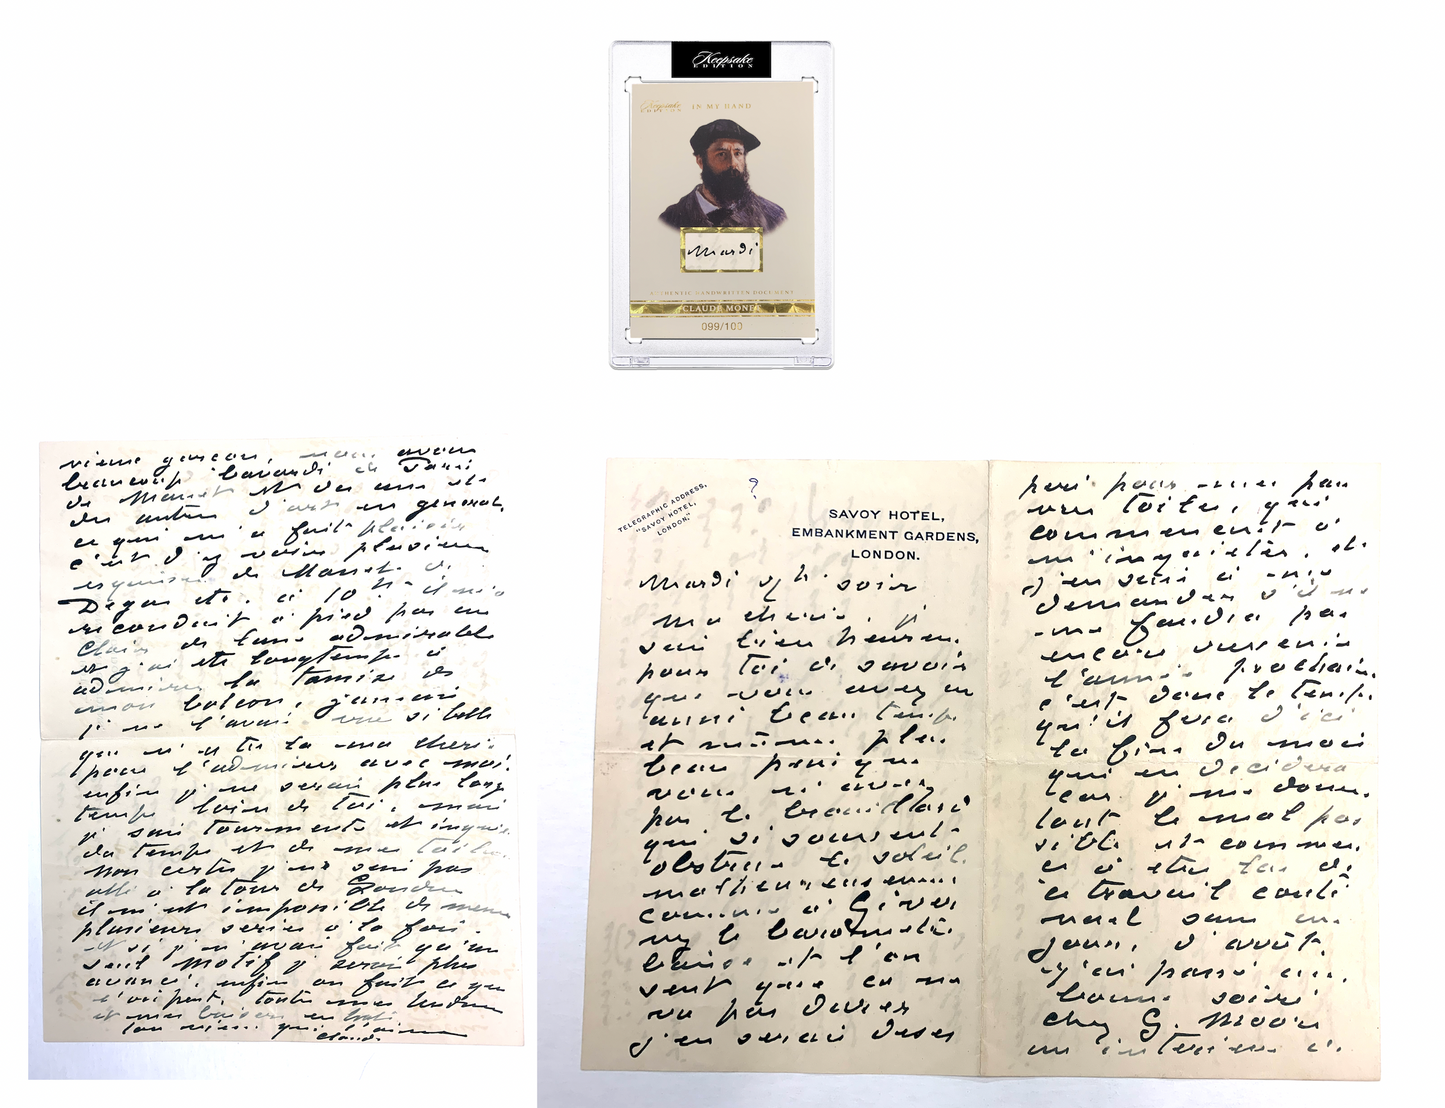 Keepsake
EDITION
Keepsake
EDITION
IN MY HAND
Mardi
AUTHENTIC HANDWRITTEN DOCUMENT
CLAUDE MONET
099/100
vieux garçon, nous avons
beaucoup bavardé de Paris
de Manet et
des autres d'art en general,
ce qui m'a fait plaisir
c'est d'y voir plusieurs
esquisses de Manet de
Degas etc. à 10 h il m'a
reconduit à pied par un
Clair de lune admirable
et j'ai été longtemps à
admirer la tamise de
mon balcon, jamais
je ne l'avais vue si belle
que n'es tu là ma cherie
pour l'admirer avec moi.
enfin je ne serai plus long
temps loin de toi, mais
je suis tourmenté et inquiet
du temps et de mes toiles.
Non certes je ne suis pas
allé à la tour de Londres
il m'est impossible de mener
plusieurs series à la fois.
et si je n'avais fait qu'un
seul motif je serais plus
avancé, enfin on fait ce que
l'on peut, toutes mes tendresses
et mes baisers
ton vieux qui t'aime
Claude
TELEGRAPHIC ADDRESS,
"SAVOY HOTEL,
LONDON."
?
SAVOY HOTEL,
EMBANKMENT GARDENS,
LONDON.
Mardi h soir
Ma cherie, je
suis bien heureux
pour toi de savoir
que vous avez un
aussi beau temps
et même plus
beau puisque
vous n'avez
pas le brouillard
qui si souvent
obstrue le soleil.
malheureusement
comme à Giverny
le baromètre
baisse et l'on
sent que ça ne
va pas durer
j'en serais deses
peré pour mes pau
vres toiles, qui
commencent à
m'inquieter, et
j'en suis à me
demander s'il ne
me faudra pas
encore revenir
l'année prochaine.
c'est donc le temps
qu'il fera d'ici
la fin du mois
qui en decidera
car je me donne
tout le mal pos
sible et commen
ce à être las de
ce travail conti
nuel sans un
jour, d'arrêt
j'ai passé une
bonne soirée
chez G. Moore
un interieur de